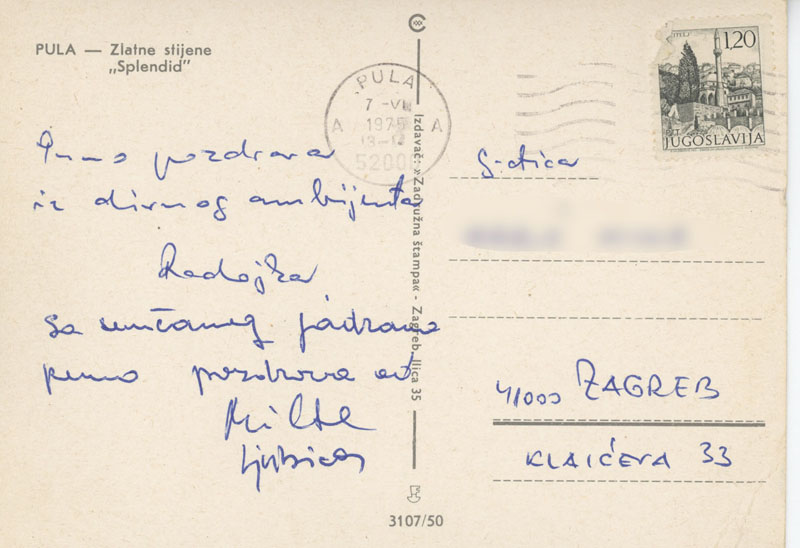 PULA — Zlatne stijene
„Splendid”
PULA
7 -VI
1975
A A
52000
1,20
JUGOSLAVIJA
Izdavač: »Zadružna štampa« - Zagreb, Ilica 35
Puno pozdrava
iz divnog ambijenta
Radojka
Sa sunčanog jadrana
puno pozdrava od
Ljubica
G-ctica
41000 ZAGREB
KLAIĆEVA 33
3107/50